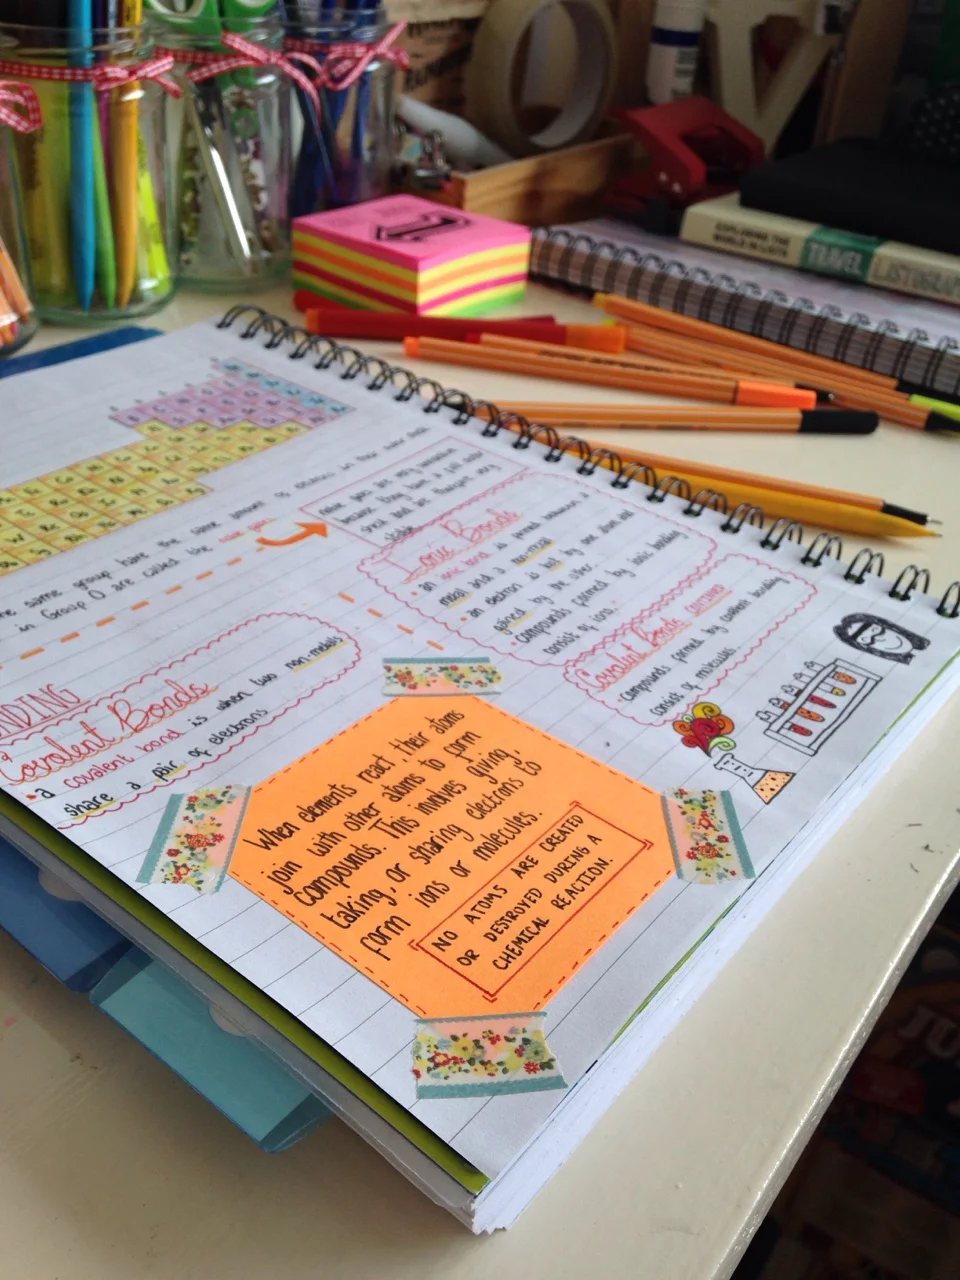 EXPLORING THE
WORLD IN LISTS
TRAVEL
LISTOGRAPHY
same group have the same amount of
in Group 0 are called the
because they have a full outer
stable
Ionic Bonds
• an ionic bond is formed between a
metal and a non-metal
• an electron is lost by one atom and
gained by the other.
• compounds formed by ionic bonding
consist of ions.
Covalent Bonds CONTINUED
• compounds formed by covalent bonding
consist of molecules.
NDING
Covalent Bonds
• a covalent bond is when two non-metals
share a pair of electrons
When elements react, their atoms
join with other atoms to form
compounds. This involves giving,
taking, or sharing electrons to
form ions or molecules.
NO ATOMS ARE CREATED
OR DESTROYED DURING A
CHEMICAL REACTION.